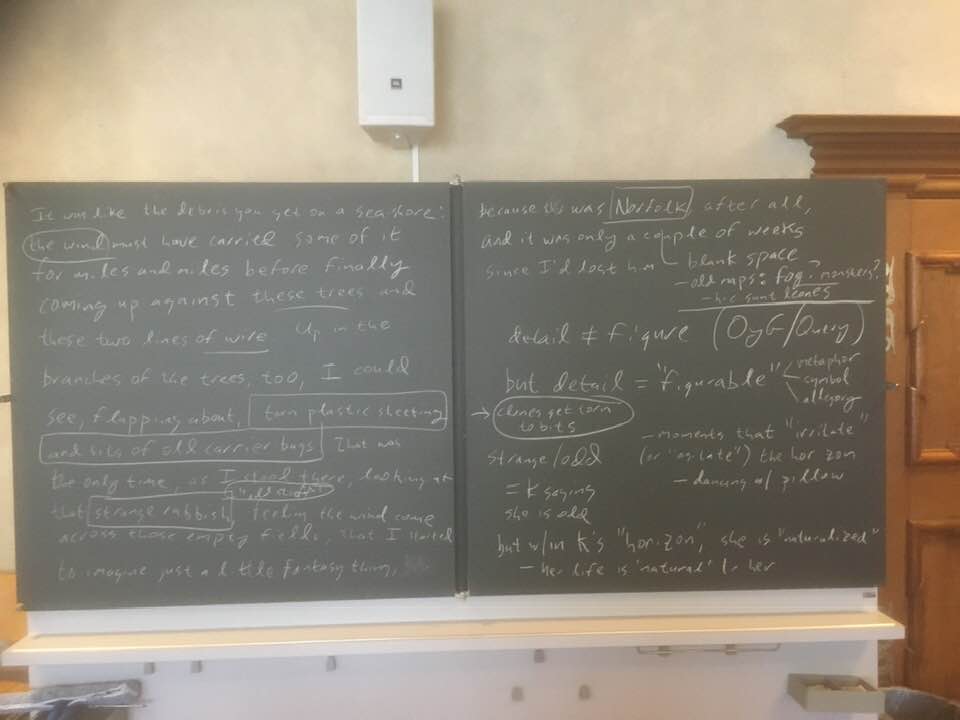 JBL
It was like the debris you get on a sea-shore:
the wind must have carried some of it
for miles and miles before finally
coming up against these trees and
these two lines of wire Up in the
branches of the trees, too, I could
see, flapping about, torn plastic sheeting
and bits of old carrier bags That was
the only time, as I stood there, looking at
that strange rubbish, feeling the wind come
across those empty fields, that I started
to imagine just a little fantasy thing,
because this was Norfolk after all,
and it was only a couple of weeks
since I'd lost him
blank space
- old maps: fog? monsters?
- hic sunt leones
detail ≠ figure (OyG/Query)
but detail = "figurable"
metaphor
symbol
allegory
→ clones get torn
to bits
- moments that "irritate"
(or "agitate") the horizon
- dancing w/ pillow
strange/odd
= K saying
she is odd
but w/in K's "horizon," she is "naturalized"
- her life is 'natural' to her